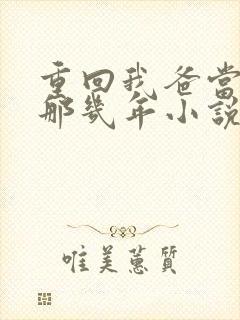 重回我爸当
那几年小说
唯美蕙质